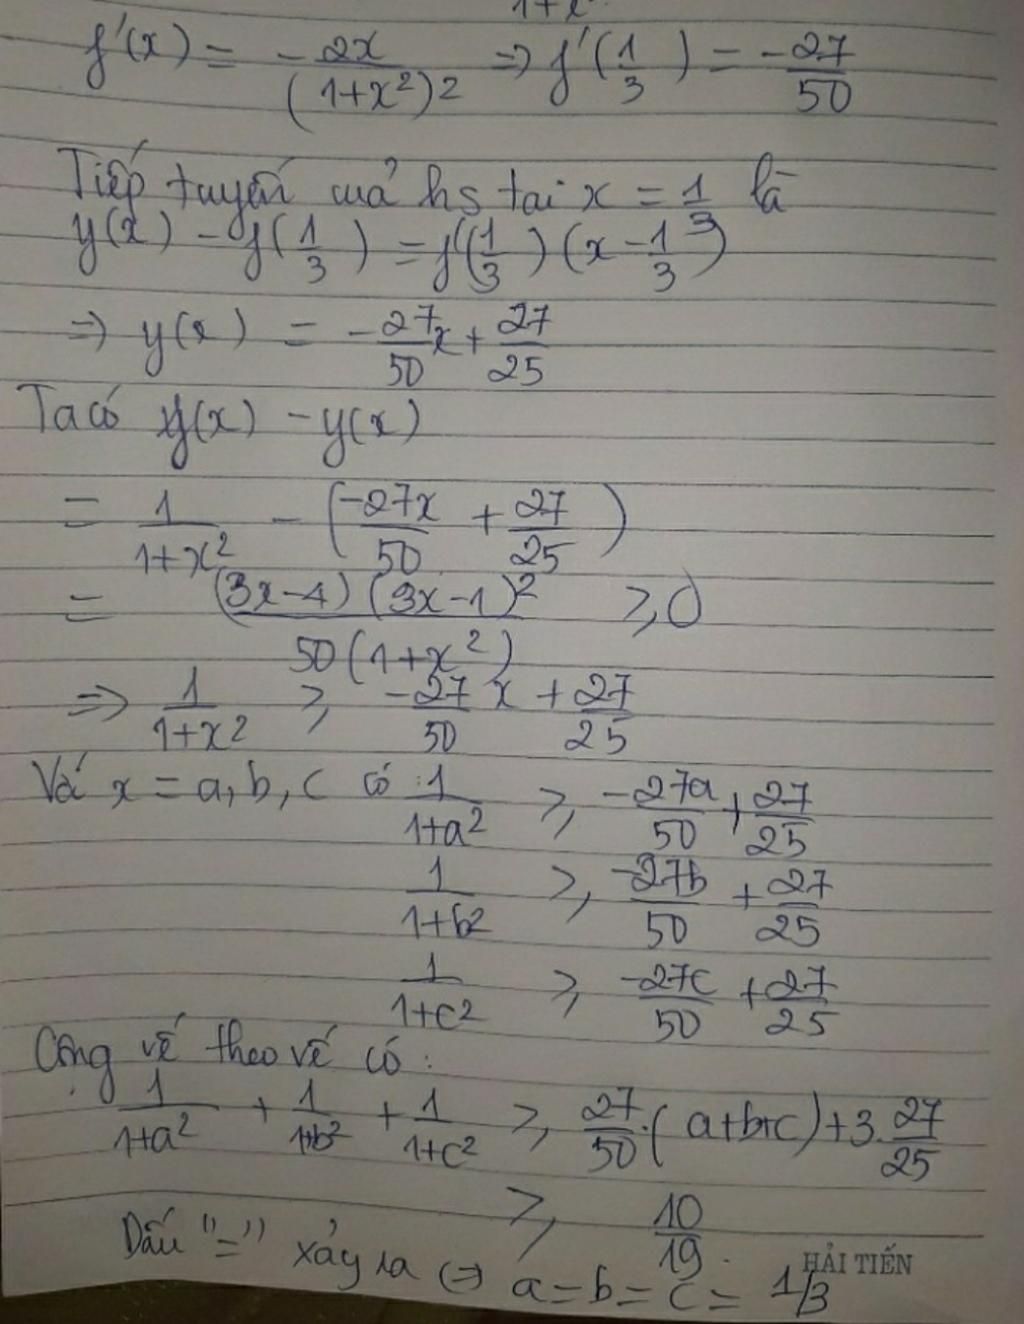 1+x
f'(x) = -2x/(1+x²)2 ⇒ f'(1/3) = -27/50
Tiếp tuyến cuả hs tai x = 1/3 là
y(x) - f(1/3) = f'(1/3)(x - 1/3)
⇒ y(x) = -27/50 x + 27/25
Ta có f(x) - y(x)
= 1/1+x² - (-27x/50 + 27/25)
= (3x-4)(3x-1)²/50(1+x²) ≥ 0
⇒ 1/1+x² ≥ -27/50 x + 27/25
Vớ x = a, b, c có : 1/1+a² ≥ -27a/50 + 27/25
1/1+b² ≥ -27b/50 + 27/25
1/1+c² ≥ -27c/50 + 27/25
Cộng vế theo vế có :
1/1+a² + 1/1+b² + 1/1+c² ≥ 27/50 . (a+b+c) + 3. 27/25
≥ 10/19 .
Dấu "=" xảy ra ⇔ a = b = c = 1/3
HẢI TIẾN